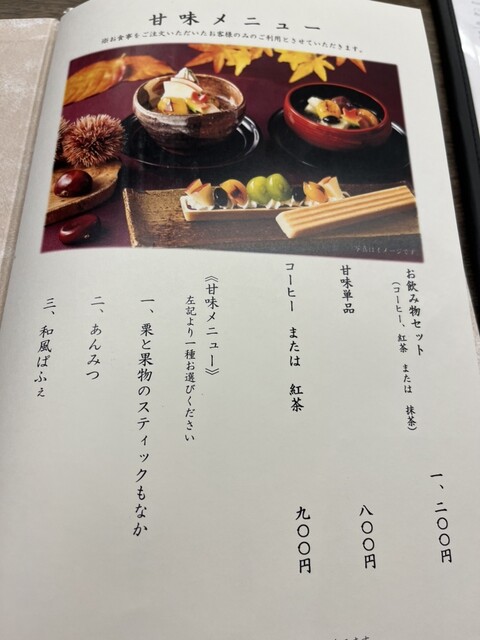 甘味メニュー
※お食事をご注文いただいたお客様のみのご利用とさせていただきます。
写真はイメージです
お飲み物セット
(コーヒー、紅茶 または 抹茶)
一、二〇〇円
甘味単品
八〇〇円
コーヒー または 紅茶
九〇〇円
《甘味メニュー》
左記より一種お選びください
一、栗と果物のスティックもなか
二、あんみつ
三、和風ぱふぇ